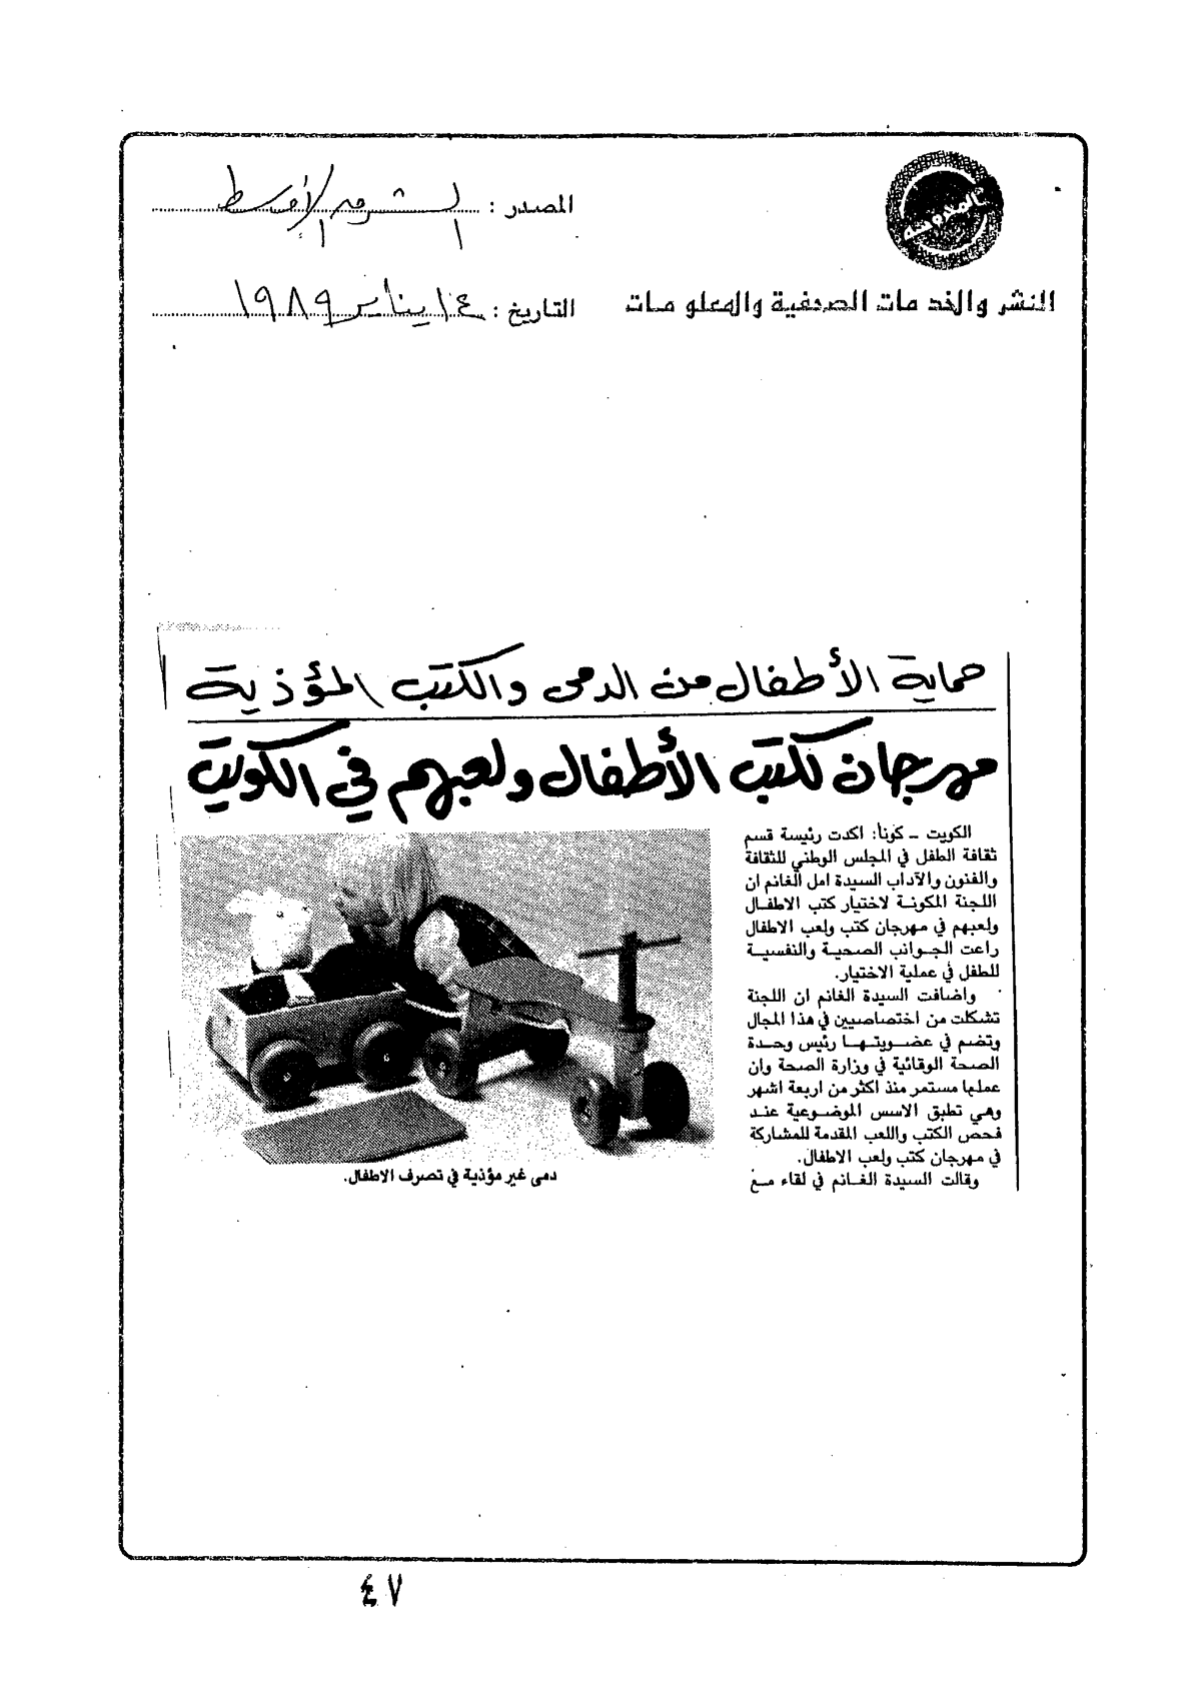 المدوسة
المصدر : الشرق الأوسط
النشر والخدمات الصحفية والمعلومات
التاريخ : ١٤ يناير ١٩٨٩
حماية الأطفال من الدمى والكتب المؤذية
مهرجان لكتب الأطفال ولعبهم في الكويت
الكويت - كونا: اكدت رئيسة قسم
ثقافة الطفل في المجلس الوطني للثقافة
والفنون والآداب السيدة امل الغانم ان
اللجنة المكونة لاختيار كتب الاطفال
ولعبهم في مهرجان كتب ولعب الاطفال
راعت الجوانب الصحية والنفسية
للطفل في عملية الاختيار.
واضافت السيدة الغانم ان اللجنة
تشكلت من اختصاصيين في هذا المجال
وتضم في عضويتها رئيس وحدة
الصحة الوقائية في وزارة الصحة وان
عملها مستمر منذ اكثر من اربعة اشهر
وهي تطبق الاسس الموضوعية عند
فحص الكتب واللعب المقدمة للمشاركة
في مهرجان كتب ولعب الاطفال.
وقالت السيدة الغانم في لقاء مع
دمى غير مؤذية في تصرف الاطفال.
٤٧